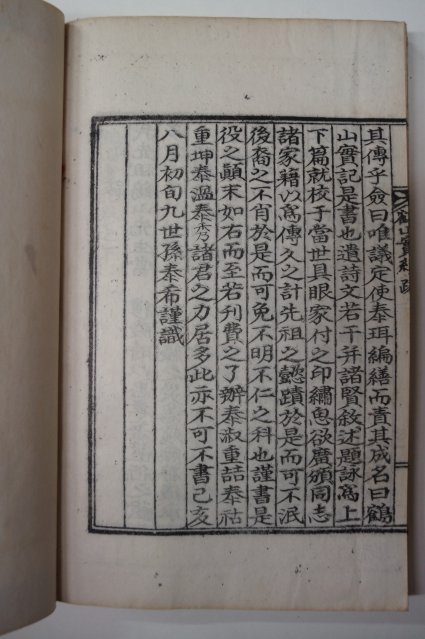 其傳乎僉曰唯議定使泰珥編繕而責其成名曰鶴
山實記是書也遺詩文若干并諸賢敘述題詠爲上
下篇就校于當世具眼家付之印繡思欲廣頒同志
諸家籍以爲傳久之計先祖之懿蹟於是而可不泯
後裔之不肖於是而可免不明不仁之科也謹書是
役之顚末如右而至若刊費之了辦泰淑重喆泰祜
重坤泰溫泰秀諸君之力居多此亦不可不書己亥
八月初旬九世孫泰希謹識